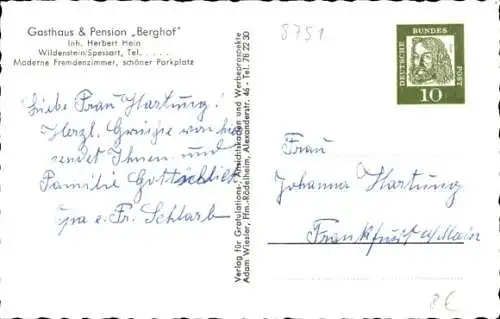 8751
Gasthaus & Pension „Berghof"
Inh. Herbert Hein
Wildenstein/Spessart, Tel. . . . . .
Moderne Fremdenzimmer, schöner Parkplatz
Liebe Frau Hartung!
Herzl. Grüße von hier
sendet Ihnen und
Familie Gottschlich
Opa e. Fr. Schlarb
Verlag für Gratulations-, Ansichtskarten und Werbeprospekte
Adam Wiesler, Ffm.-Rödelheim, Alexanderstr. 46 - Tel. 78 22 30
DEUTSCHE
BUNDES
POST
10
Frau
Johanna Hartung
Frankfurt a/Main
8€